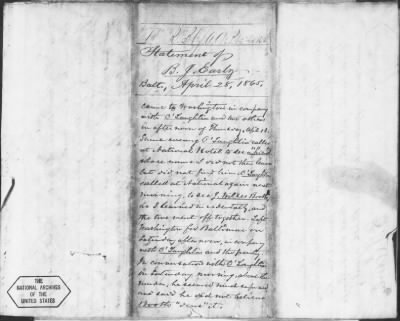 Statement of
B. J. Early
Balto, April 28, 1865.
Came to Washington in company
with O'Laughlin and two others
in afternoon of Thursday, Apl. 13.
Same evening O'Laughlin called
at National Hotel to see
whose name I did not then know
but did not find him. O'Laughlin
called at National again next
morning, to see J. Wilkes Booth,
as I learned incidentally, and
the two went off together. Left
Washington for Baltimore on
Saturday afternoon, in company
with O'Laughlin and the party.
In conversation with O'Laughlin
on Saturday morning, about the
murder, he seemed much
and said he did not believe
Booth "done" it.
THE
NATIONAL ARCHIVES
OF THE
UNITED STATES